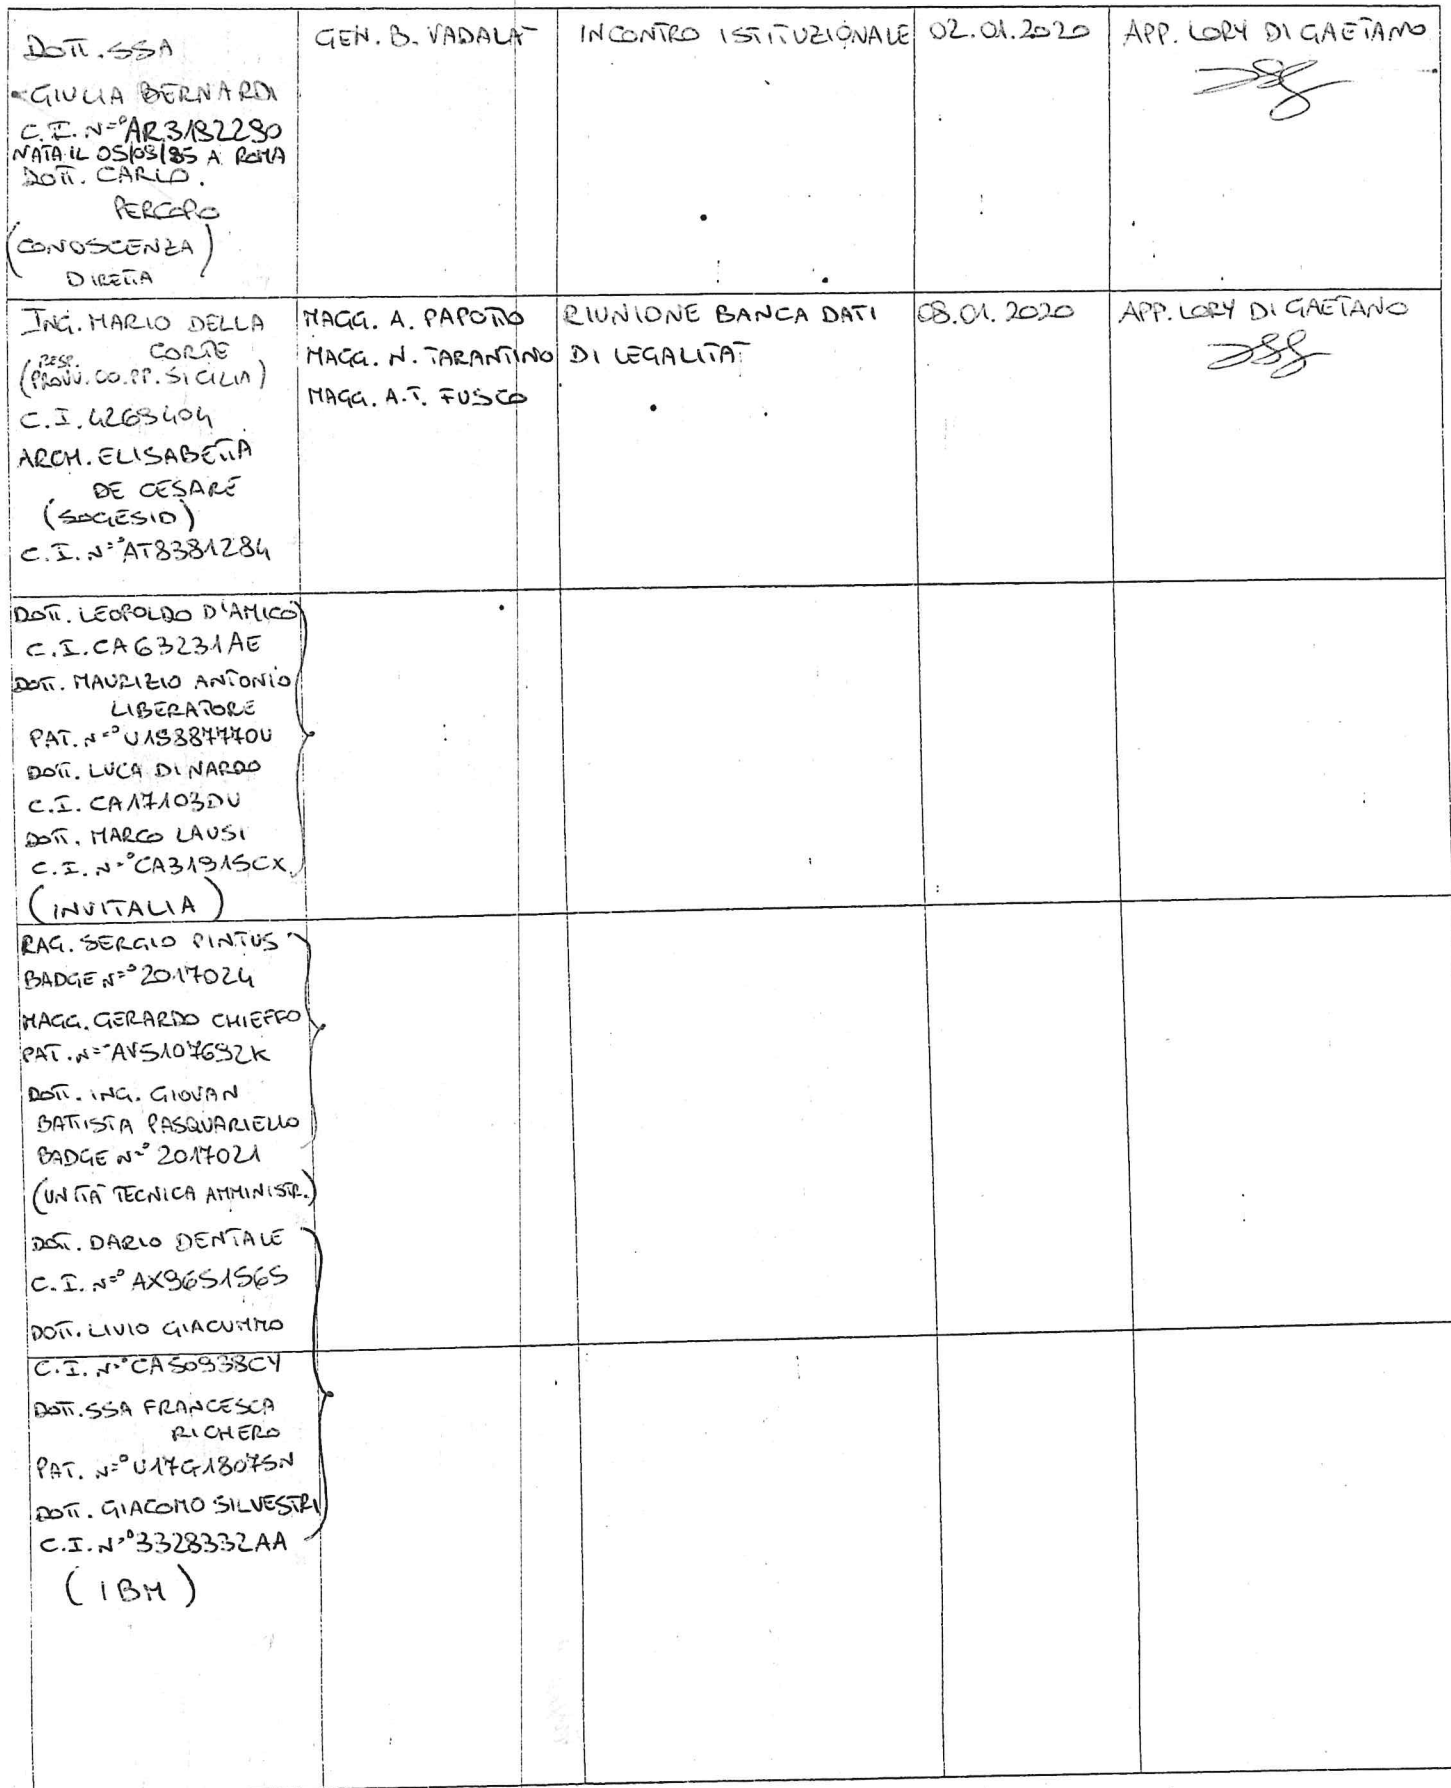 DOTT.SSA
GIULIA BERNARDI
C.I. N=°AR3192290
NATA IL 05/09/85 A ROMA
DOTT. CARLO
PERCOPO
(CONOSCENZA)
DIRETTA
GEN. B. VADALA'
INCONTRO ISTITUZIONALE
02.01.2020
APP. LORY DI GAETANO
ING. MARIO DELLA
CORTE
(RESP.
PROVV. OO.PP. SICILIA)
C.I. 4269404
ARCH. ELISABETTA
DE CESARE
(SOGESID)
C.I. N=°AT8381284
MAGG. A. PAPOTTO
MAGG. N. TARANTINO
MAGG. A.T. FUSCO
RIUNIONE BANCA DATI
DI LEGALITA'
08.01.2020
APP. LORY DI GAETANO
DOTT. LEOPOLDO D'AMICO
C.I. CA63231AE
DOTT. MAURIZIO ANTONIO
LIBERATORE
PAT. N=°U19887770U
DOTT. LUCA DI NARDO
C.I. CA17103DU
DOTT. MARCO LAUSI
C.I. N=°CA31915CX
(INVITALIA)
RAG. SERGIO PINTUS
BADGE N=°2017024
MAGG. GERARDO CHIEFFO
PAT. N=°AV5107692K
DOTT. ING. GIOVAN
BATTISTA PASQUARIELLO
BADGE N=°2017021
(UNITA' TECNICA AMMINISTR.)
DOTT. DARIO DENTALE
C.I. N=°AX9651565
DOTT. LIVIO GIACUMMO
C.I. N=°CA50938CY
DOTT.SSA FRANCESCA
RICHERO
PAT. N=°U17G18075N
DOTT. GIACOMO SILVESTRI
C.I. N=°3328332AA
(IBM)